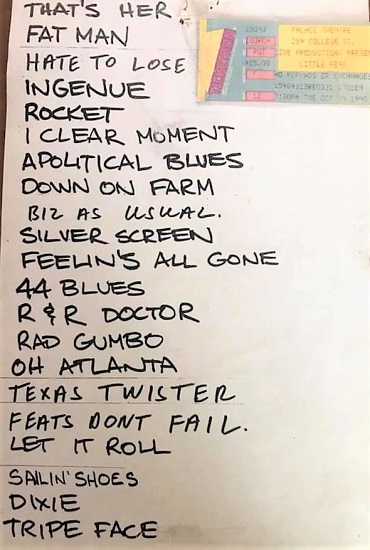 THAT'S HER
FAT MAN
HATE TO LOSE
INGENUE
ROCKET
1 CLEAR MOMENT
APOLITICAL BLUES
DOWN ON FARM
BIZ AS USUAL.
SILVER SCREEN
FEELIN'S ALL GONE
44 BLUES
R & R DOCTOR
RAD GUMBO
OH ATLANTA
TEXAS TWISTER
FEATS DONT FAIL.
LET IT ROLL
SAILIN' SHOES
DIXIE
TRIPE FACE
PALACE THEATRE
294 COLLEGE ST,
LIVE PRODUCTIONS PRESEN
LITTLE FEAT
NO REFUNDS OR EXCHANGES
$25.00